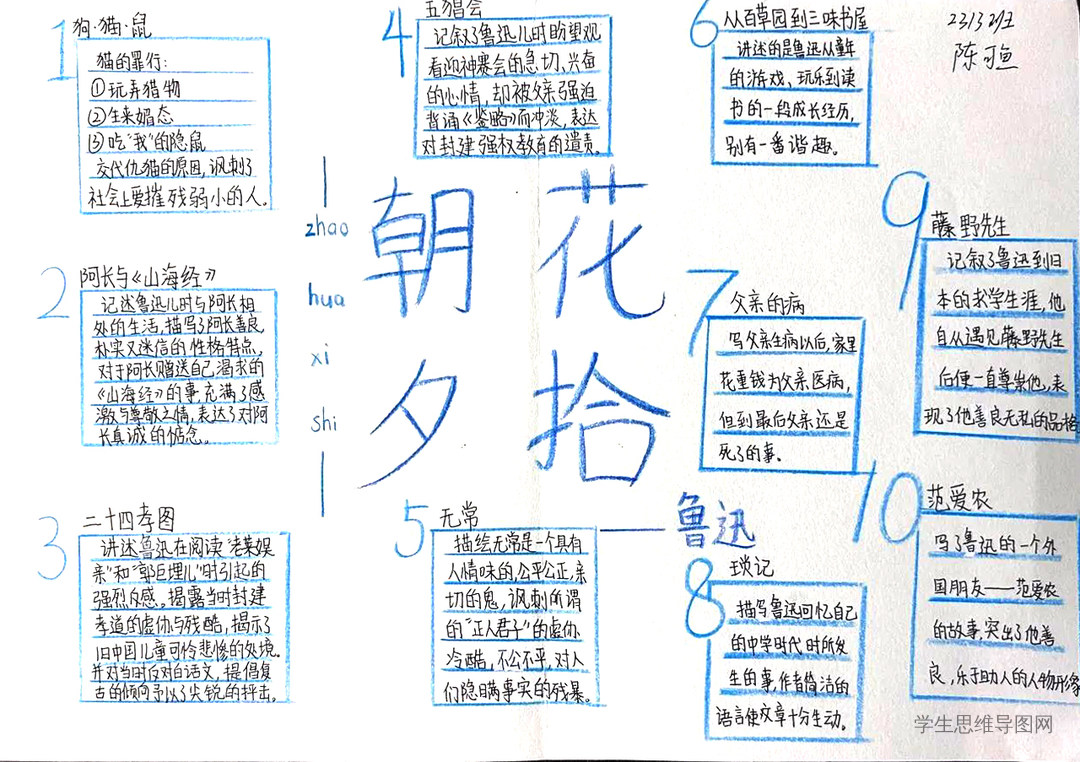 1
狗·猫·鼠
猫的罪行:
①玩弄猎物
②生来媚态
③吃"我"的隐鼠
交代仇猫的原因,讽刺了
社会上爱摧残弱小的人。
2
阿长与《山海经》
记述鲁迅儿时与阿长相
处的生活,描写了阿长善良
朴实又迷信的性格特点,
对于阿长赠送自己渴求的
《山海经》的事充满了感
激与尊敬之情,表达了对阿
长真诚的惦念。
3
二十四孝图
讲述鲁迅在阅读"老莱娱
亲"和"郭巨埋儿"时引起的
强烈反感。揭露当时封建
孝道的虚伪与残酷,揭示了
旧中国儿童可怜悲惨的处境。
并对当时反对白话文,提倡复
古的倾向予以了尖锐的抨击。
4
五猖会
记叙了鲁迅儿时盼望观
看迎神赛会的急切、兴奋
的心情,却被父亲强迫
背诵《鉴略》而冲淡,表达
对封建强权教育的谴责。
zhao
hua
xi
shi
朝花
夕拾
——鲁迅
5
无常
描绘无常是一个具有
人情味的,公平公正,亲
切的鬼,讽刺所谓
的"正人君子"的虚伪
冷酷,不公不平,对人
们隐瞒事实的残暴。
6
从百草园到三味书屋
讲述的是鲁迅从童年
的游戏、玩乐到读
书的一段成长经历,
别有一番谐趣。
2313班
陈可鱼
7
父亲的病
写父亲生病以后,家里
花重钱为父亲医病,
但到最后父亲还是
死了的事。
8
琐记
描写鲁迅回忆自己
的中学时代时所发
生的事,作者简洁的
语言使文章十分生动。
9
藤野先生
记叙了鲁迅到日
本的求学生涯,他
自从遇见藤野先生
后便一直尊崇他,表
现了他善良无私的品格
10
范爱农
写了鲁迅的一个外
国朋友——范爱农
的故事,突出了他善
良,乐于助人的人物形象
学生思维导图网